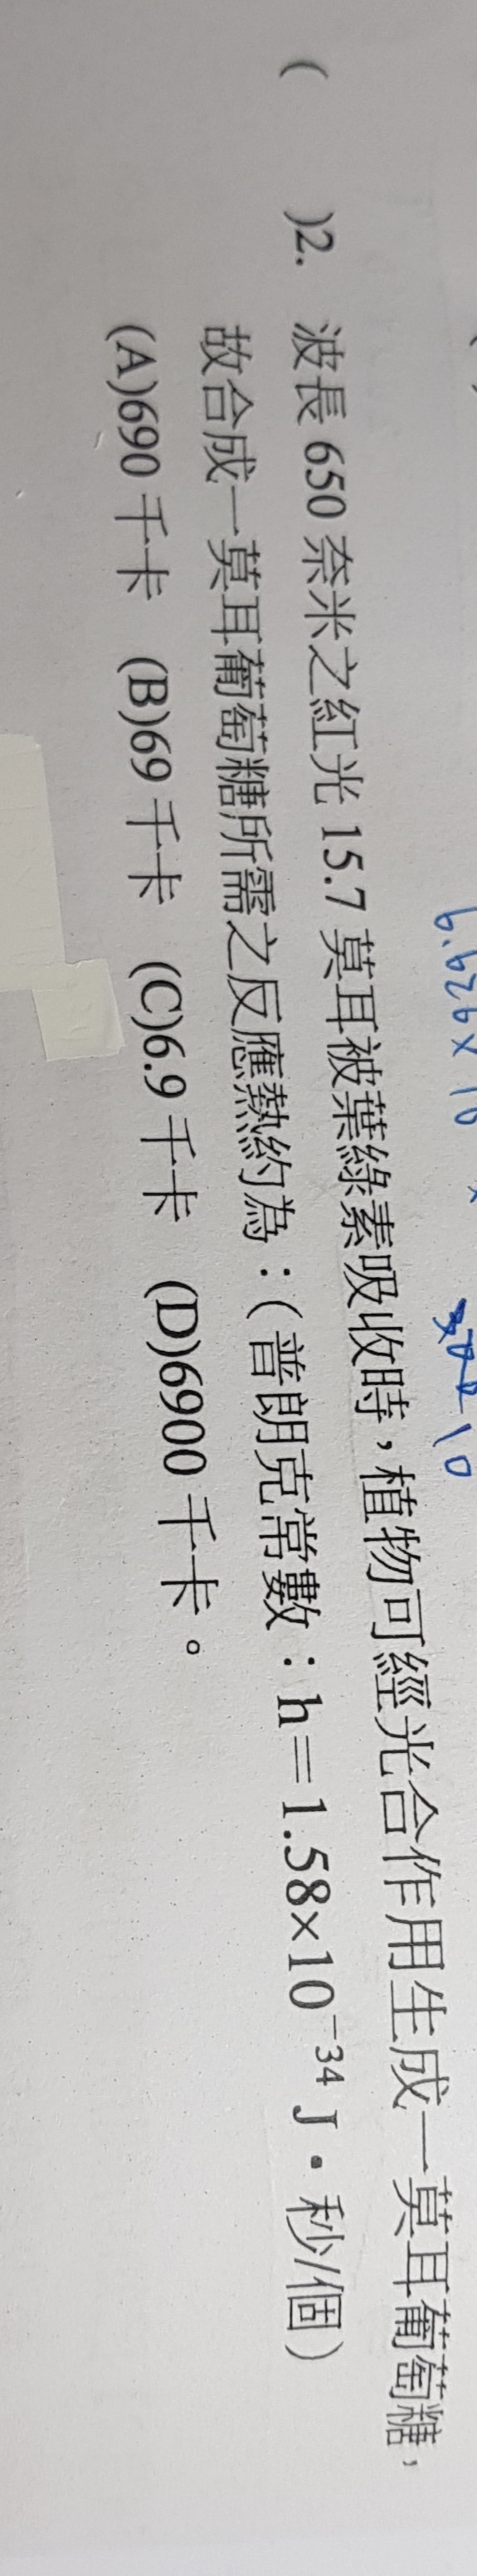 6.626×10
10
(　　)2. 波長 650 奈米之紅光 15.7 莫耳被葉綠素吸收時，植物可經光合作用生成一莫耳葡萄糖，
故合成一莫耳葡萄糖所需之反應熱約為：(普朗克常數：h＝1.58×10⁻³⁴ J·秒/個)
(A)690 千卡 (B)69 千卡 (C)6.9 千卡 (D)6900 千卡。